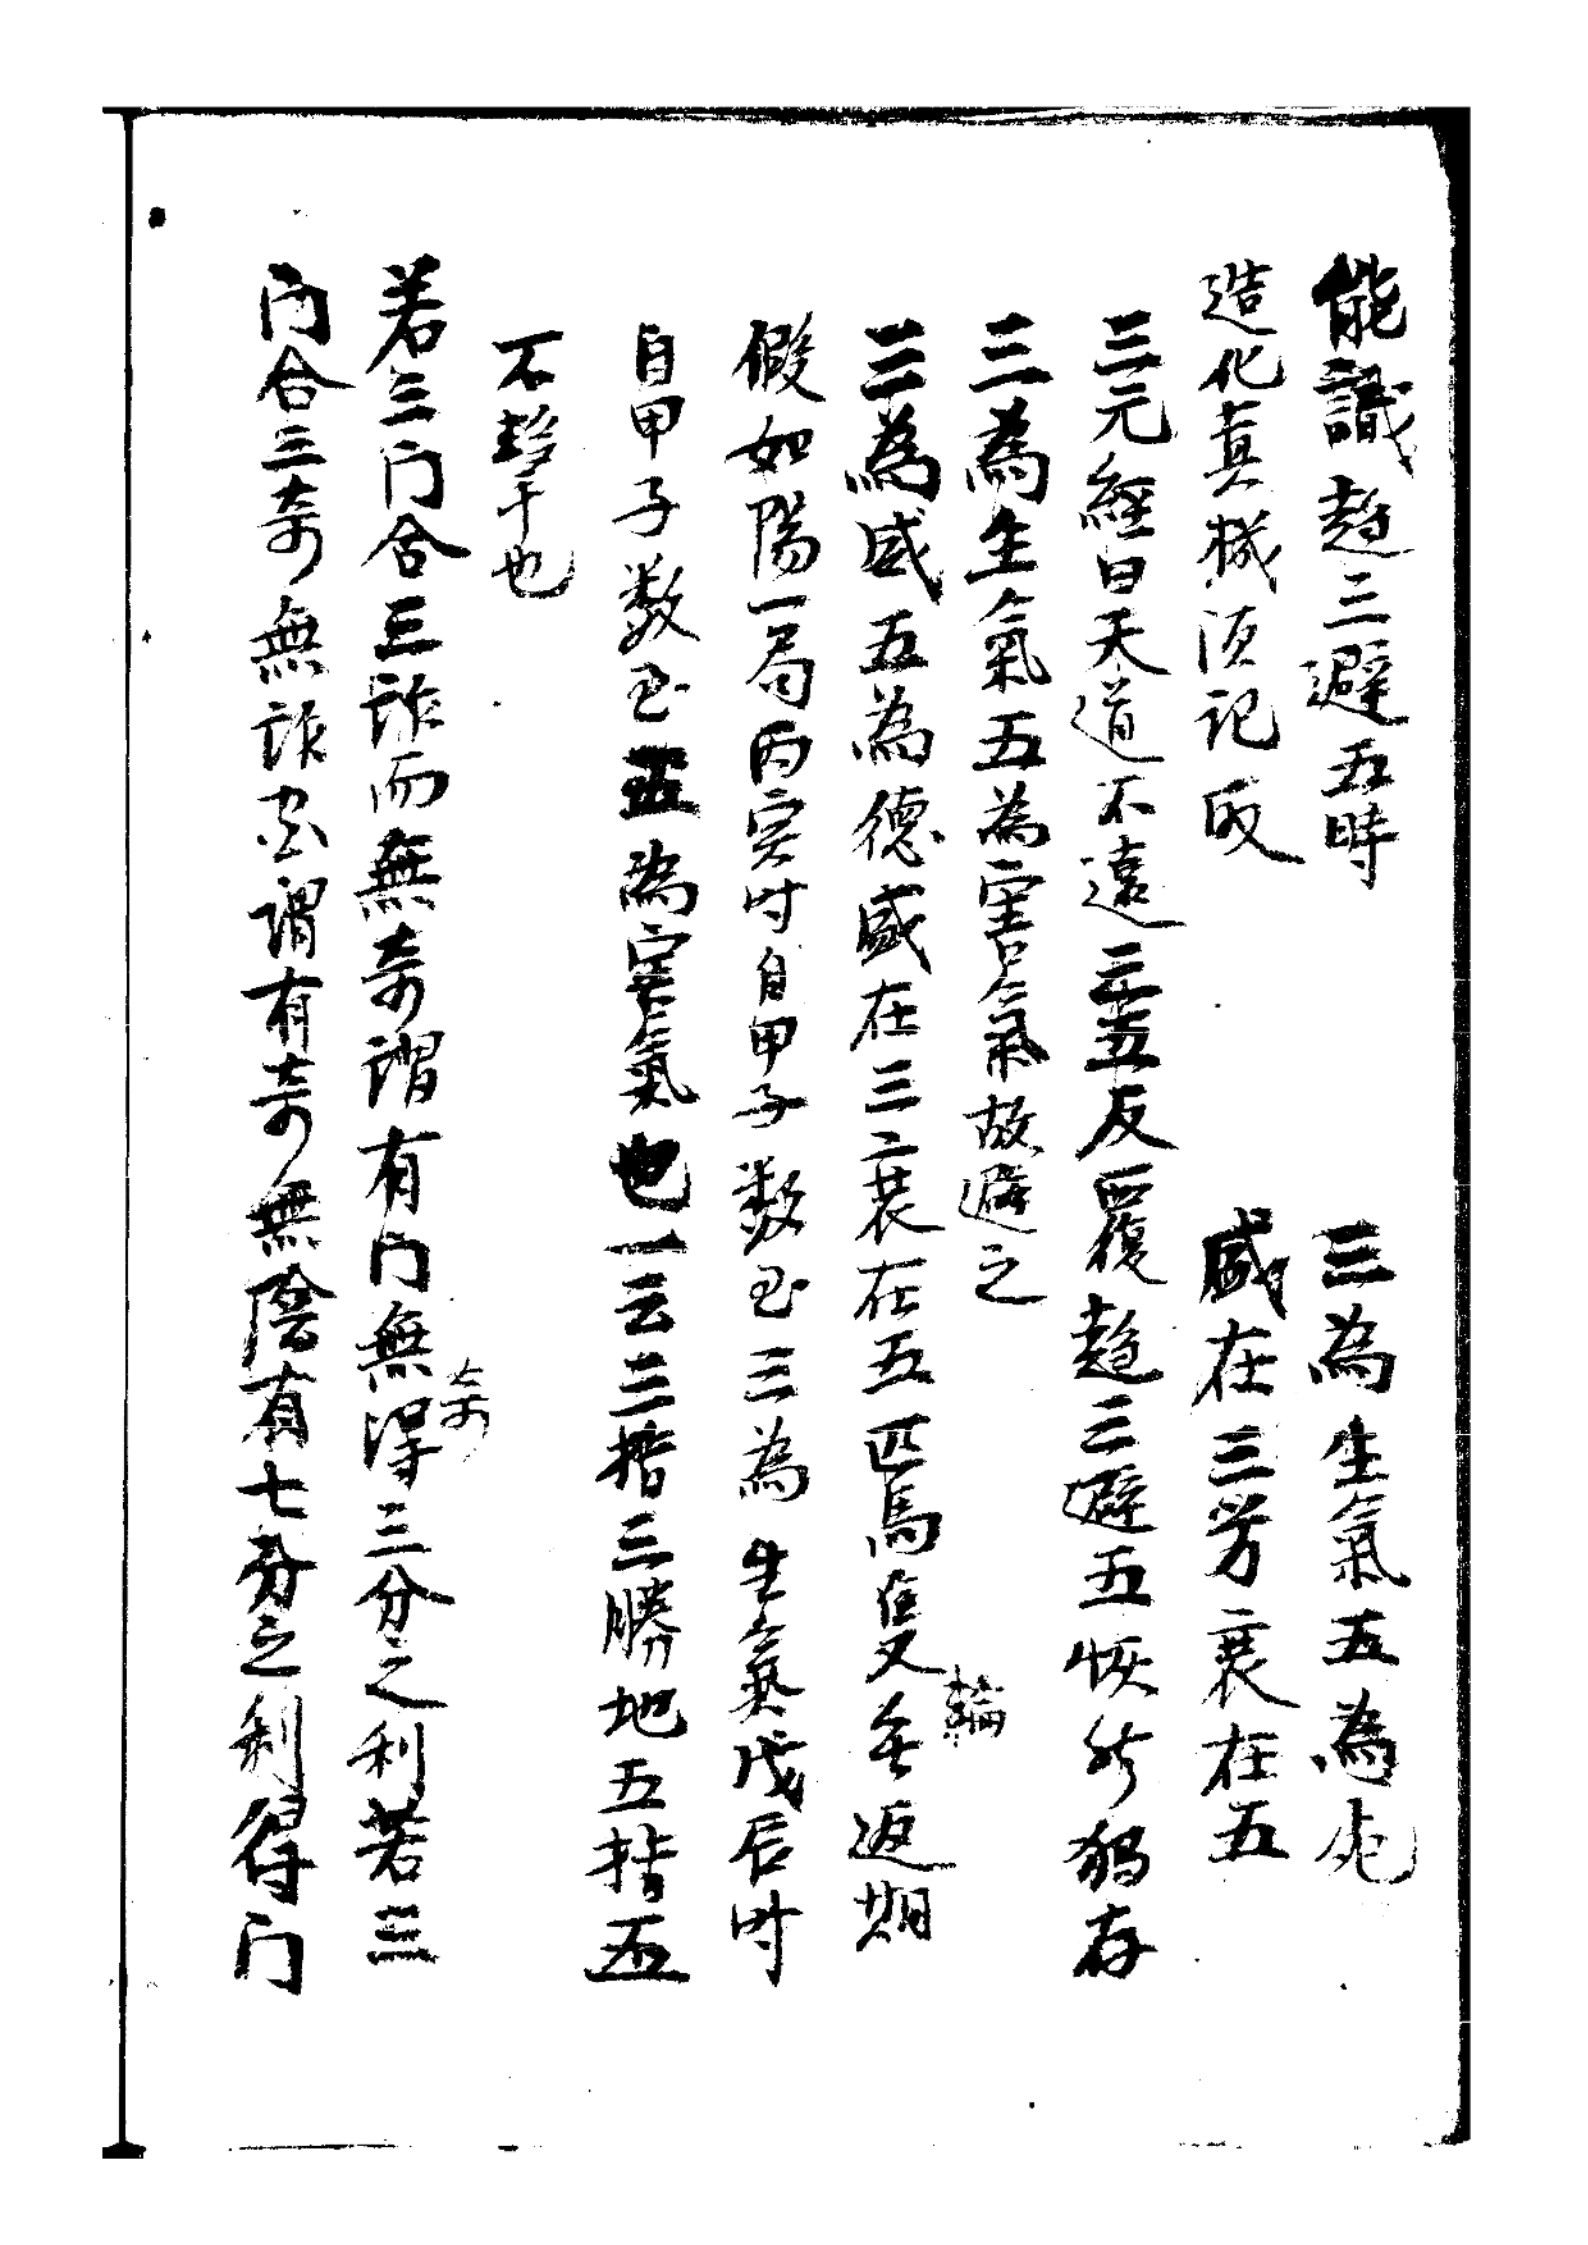 能識趋三避五時　三為生氣五為死
造化真机須記取　盛在三兮衰在五
三元經曰天道不遠三五反覆趋三避五恢然獨存
三為生氣五為害氣故避之
三為盛五為德盛在三衰在五匹馬隻輪無返期
假如陽一局丙寅时自甲子数至三為生氣戊辰时
自甲子数至五為害氣也一云三指三勝地五指五
不擊也
若三门合三詐而無奇謂有门無奇得三分之利若三
门合三奇無詐宫謂有奇無陰有七分之利得门